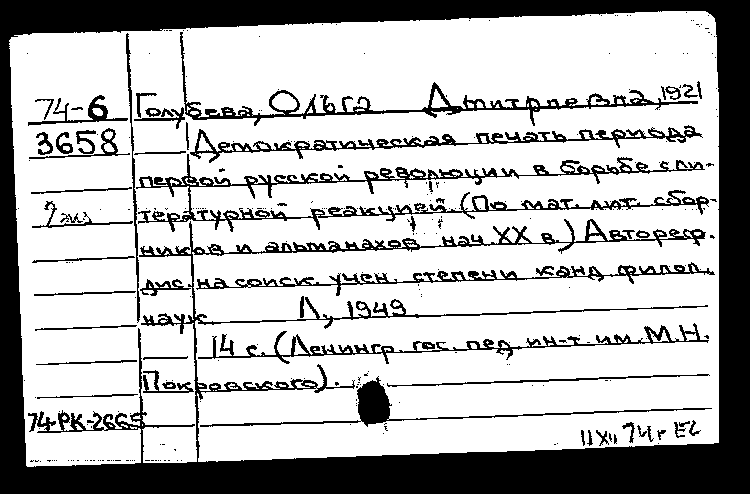 74-6 Голубева, Ольга Дмитриевна, 1921
3658 Демократическая печать периода
первой русской революции в борьбе с ли-
тературной реакцией. (По мат. лит. сбор-
ников и альманахов нач. XX в.) Автореф.
дис. на соиск. учен. степени канд. филол.
наук Л., 1949.
14 с. (Ленингр. гос. пед. ин-т им. М.Н.
Покровского).
74-РК-2665